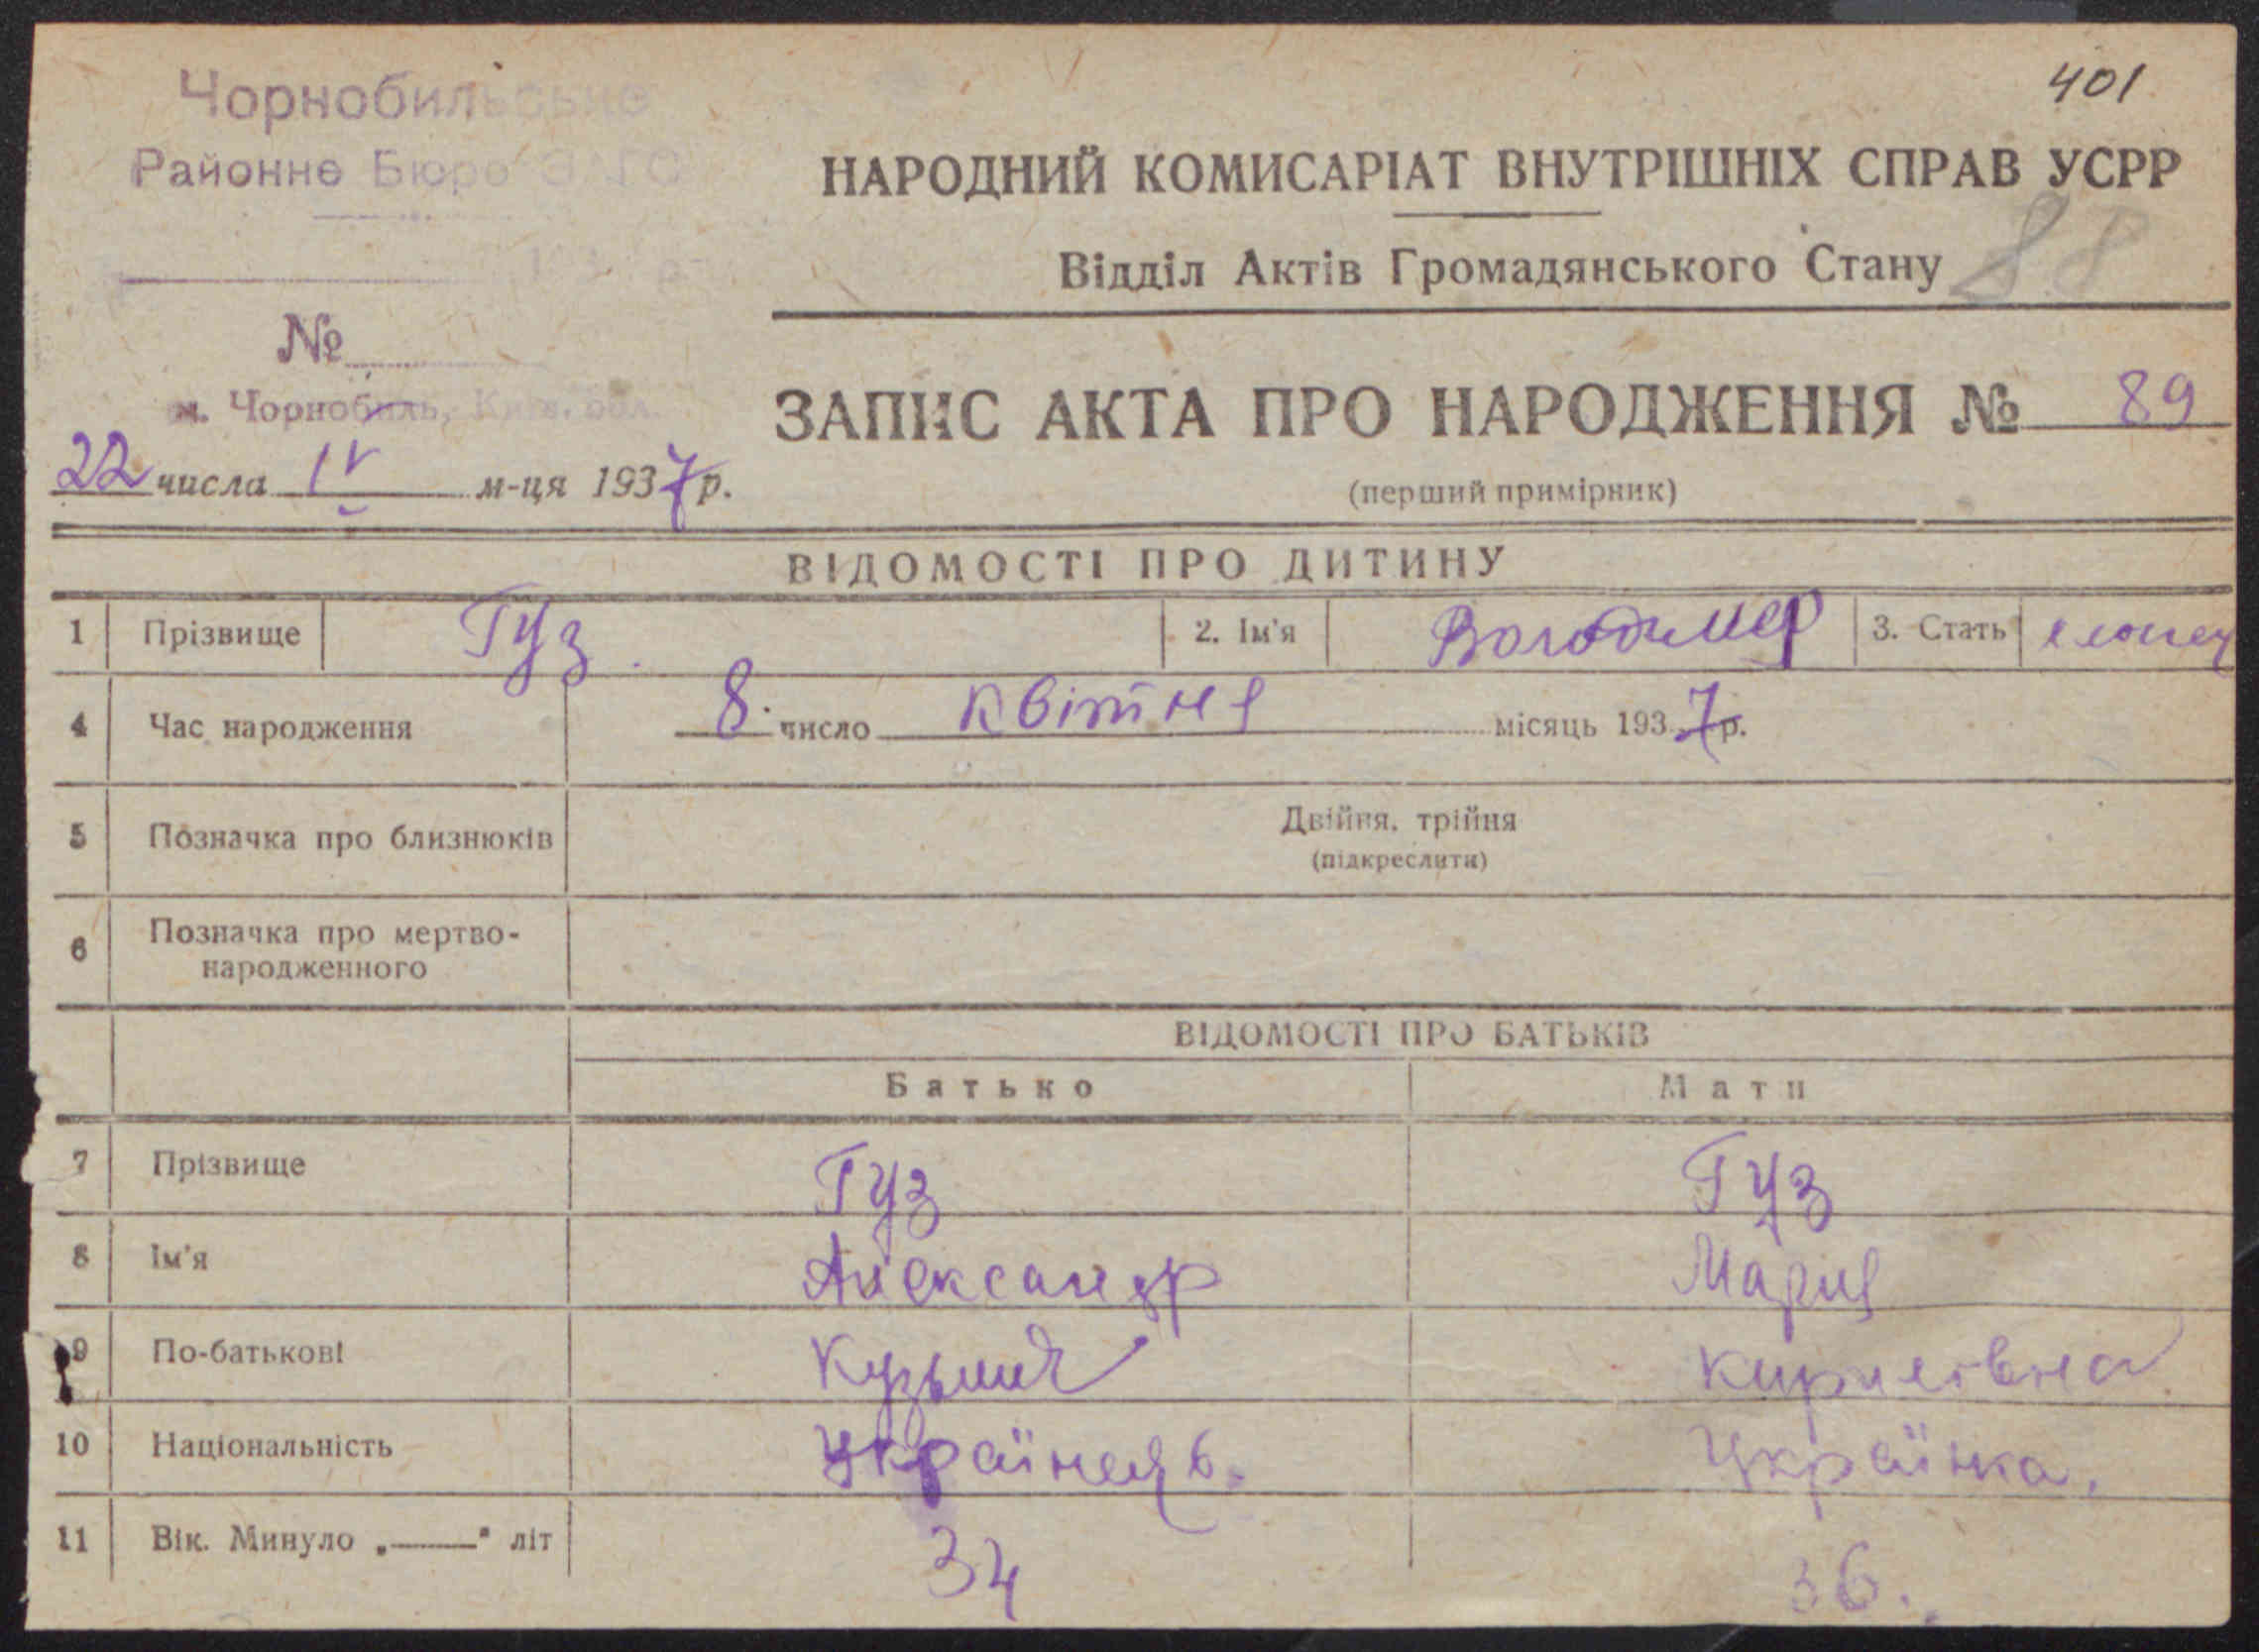 401
Чорнобильське
Районне Бюро ЗАГС
НАРОДНИЙ КОМИСАРІАТ ВНУТРІШНІХ СПРАВ УСРР
Відділ Актів Громадянського Стану
88
№
м. Чорнобиль, Київ. обл.
ЗАПИС АКТА ПРО НАРОДЖЕННЯ № 89
22 числа IV м-ця 1937 р.
(перший примірник)
ВІДОМОСТІ ПРО ДИТИНУ
1 Прізвище Гуз. 2. Ім'я Володимер 3. Стать
4 Час народження 8. число квітня місяць 1937 р.
5 Позначка про близнюків Двійня, трійня
(підкреслити)
6 Позначка про мертво-
народженного
ВІДОМОСТІ ПРО БАТЬКІВ
Батько Мати
7 Прізвище Гуз Гуз
8 Ім'я Александр Мария
9 По-батькові Кузьмич Кирилівна
10 Національність Українець. Українка.
11 Вік. Минуло „——" літ 34 36.